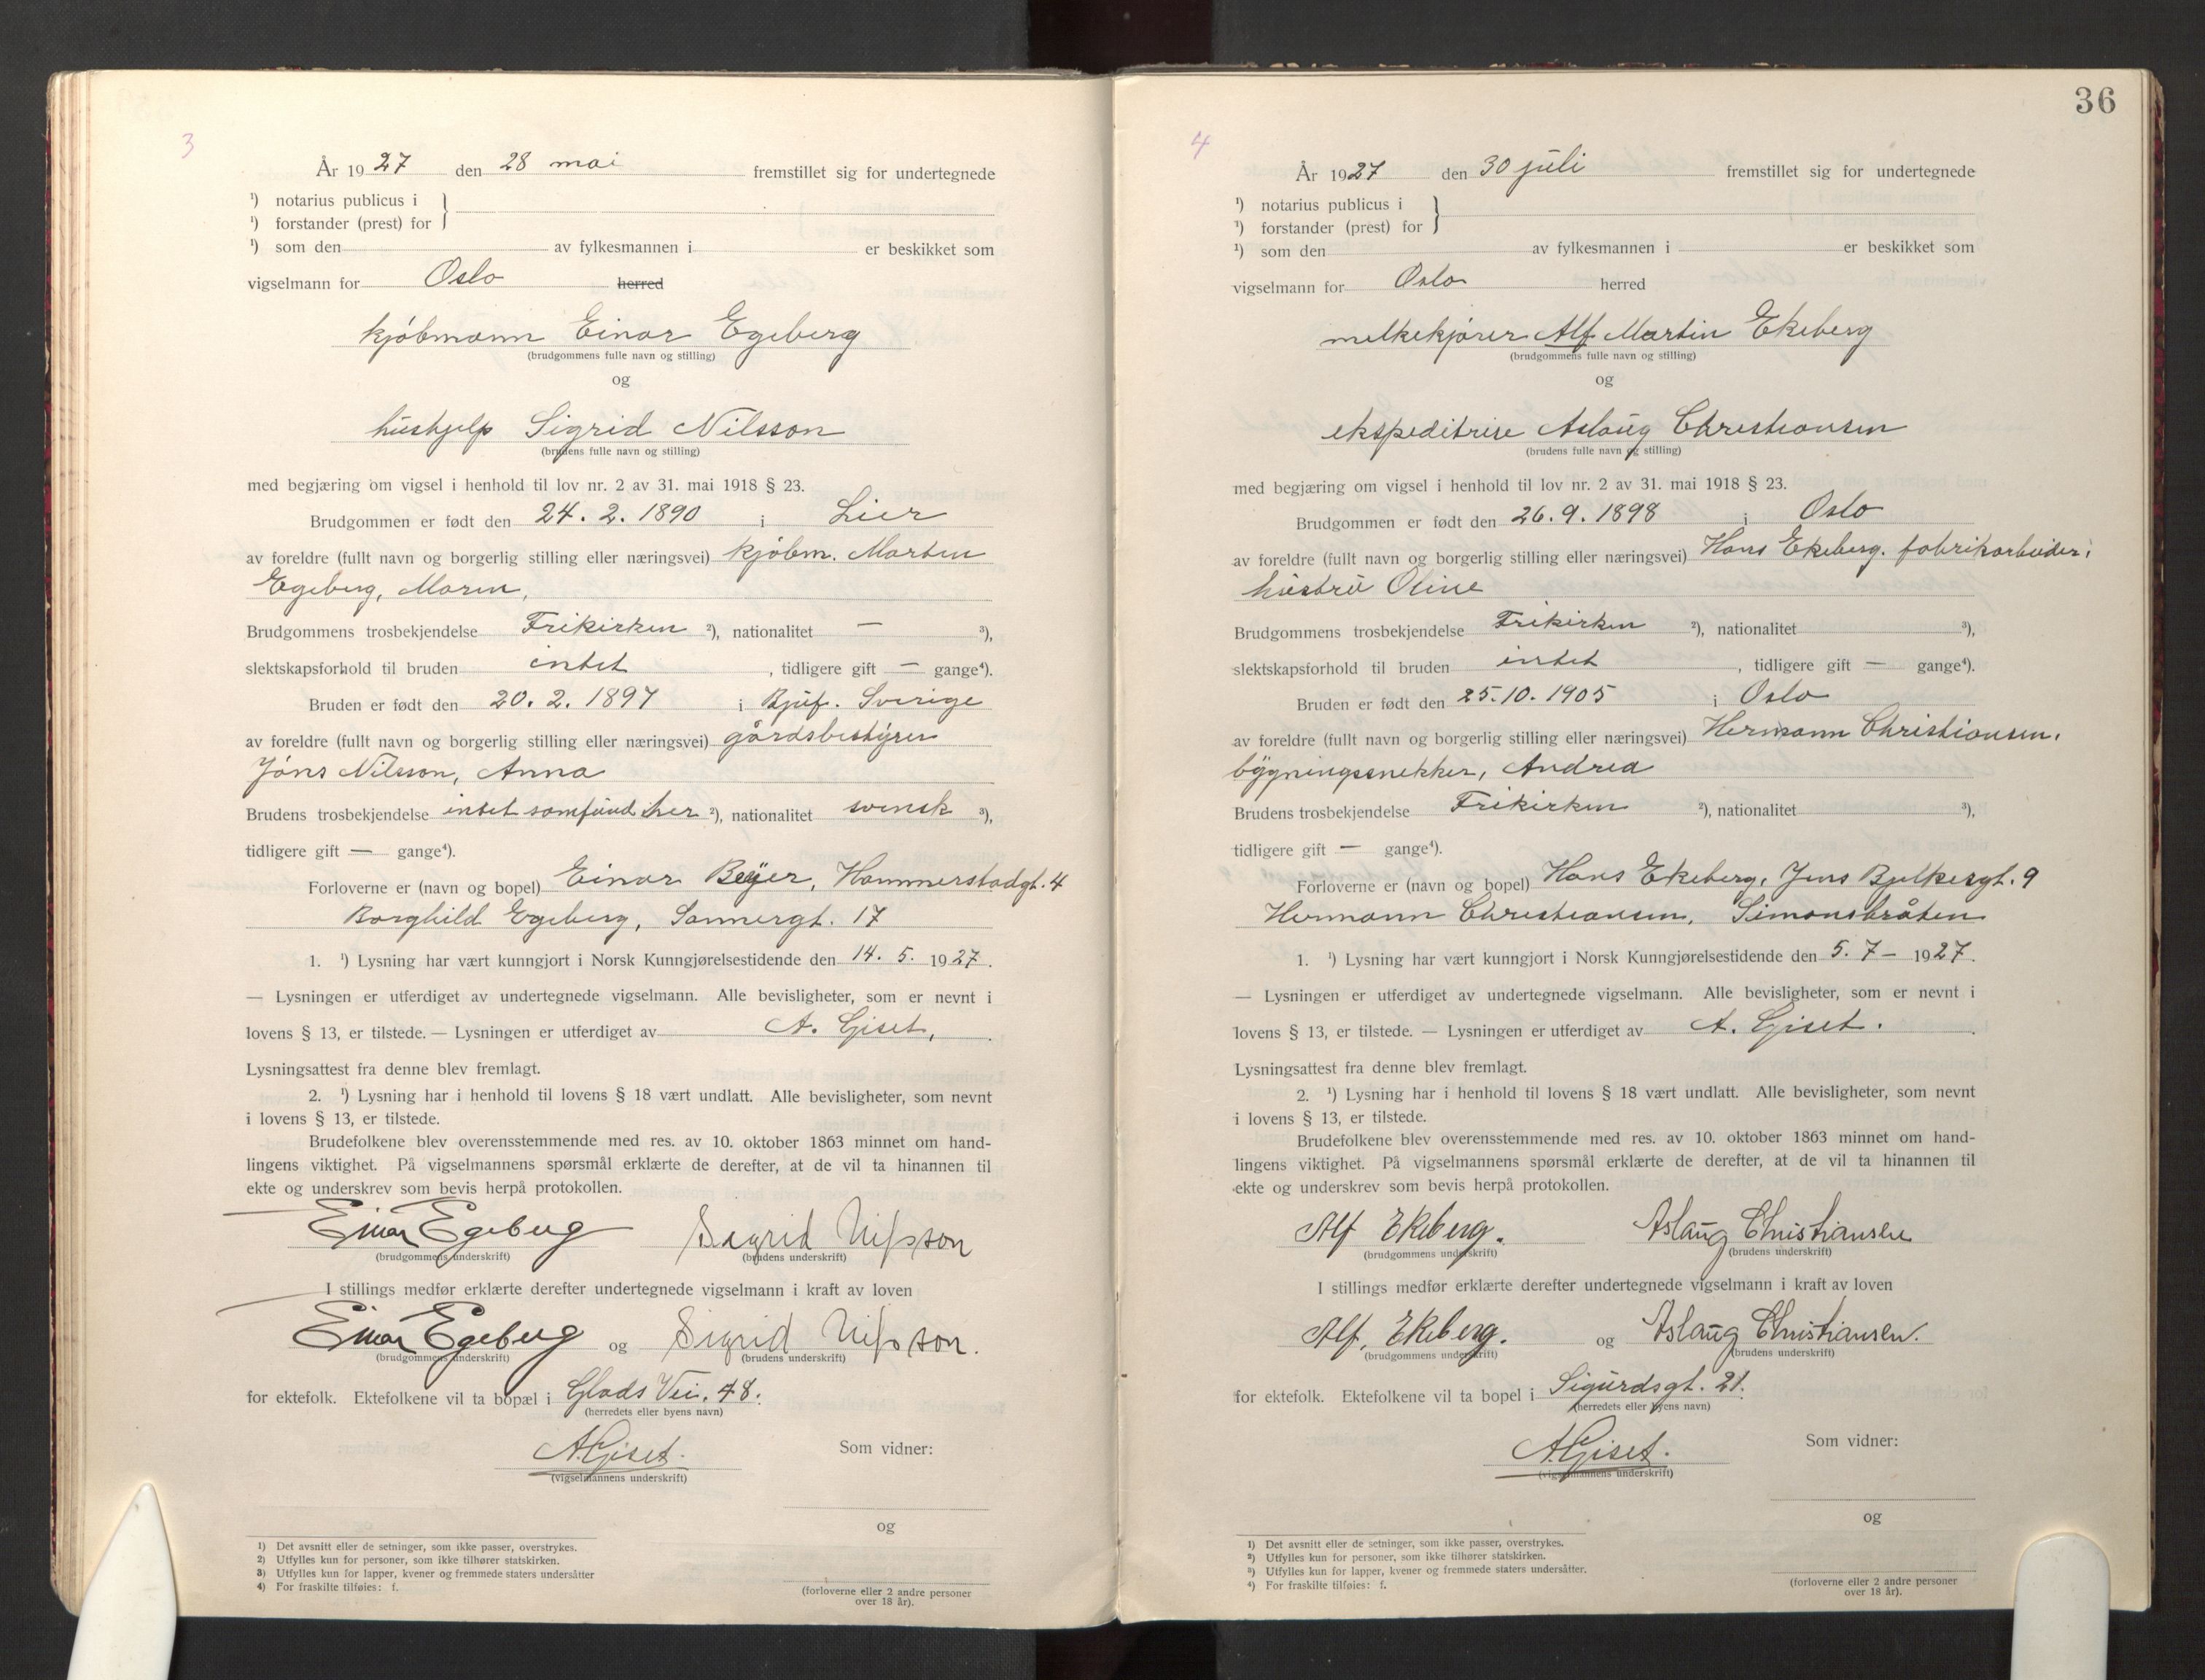 3
År 1927 den 28 mai fremstillet sig for undertegnede
¹) notarius publicus i
¹) forstander (prest) for
¹) som den av fylkesmannen i er beskikket som
vigselmann for Oslo herred
kjøbmann Einar Egeberg
(brudgommens fulle navn og stilling)
og
hushjelp Sigrid Nilsson
(brudens fulle navn og stilling)
med begjæring om vigsel i henhold til lov nr. 2 av 31. mai 1918 § 23.
Brudgommen er født den 24. 2. 1890 i Lier
av foreldre (fullt navn og borgerlig stilling eller næringsvei) kjøbm. Martin
Egeberg, Maren,
Brudgommens trosbekjendelse Frikirken ²), nationalitet — ³),
slektskapsforhold til bruden intet, tidligere gift — gange⁴).
Bruden er født den 20. 2. 1897 i Bjuf. Sverige
av foreldre (fullt navn og borgerlig stilling eller næringsvei) gårdsbestyrer
Jöns Nilsson, Anna
Brudens trosbekjendelse intet samfund her ²), nationalitet svensk ³),
tidligere gift — gange⁴).
Forloverne er (navn og bopel) Einar Beyer, Hammerstadgt. 4
Borghild Egeberg, Sannergt. 17
1. ¹) Lysning har vært kunngjort i Norsk Kunngjørelsestidende den 14. 5. 1927.
— Lysningen er utferdiget av undertegnede vigselmann. Alle bevisligheter, som er nevnt i
lovens § 13, er tilstede. — Lysningen er utferdiget av A. Giset,
Lysningsattest fra denne blev fremlagt.
2. ¹) Lysning har i henhold til lovens § 18 vært undlatt. Alle bevisligheter, som nevnt
i lovens § 13, er tilstede.
Brudefolkene blev overensstemmende med res. av 10. oktober 1863 minnet om hand-
lingens viktighet. På vigselmannens spørsmål erklærte de derefter, at de vil ta hinannen til
ekte og underskrev som bevis herpå protokollen.
Einar Egeberg Sigrid Nilsson
(brudgommens underskrift) (brudens underskrift)
I stillings medfør erklærte derefter undertegnede vigselmann i kraft av loven
Einar Egeberg og Sigrid Nilsson.
(brudgommens underskrift) (brudens underskrift)
for ektefolk. Ektefolkene vil ta bopæl i Glads Vei. 48.
(herredets eller byens navn)
A. Giset.
(vigselmannens underskrift)
Som vidner:
og
(forloverne eller 2 andre personer
over 18 år).
1) Det avsnitt eller de setninger, som ikke passer, overstrykes.
2) Utfylles kun for personer, som ikke tilhører statskirken.
3) Utfylles kun for lapper, kvener og fremmede staters undersåtter
4) For fraskilte tilføies: f.
36
4
År 1927 den 30 juli fremstillet sig for undertegnede
¹) notarius publicus i
¹) forstander (prest) for
¹) som den av fylkesmannen i er beskikket som
vigselmann for Oslo herred
melkekjører Alf Martin Ekeberg
(brudgommens fulle navn og stilling)
og
ekspeditrise Aslaug Christiansen
(brudens fulle navn og stilling)
med begjæring om vigsel i henhold til lov nr. 2 av 31. mai 1918 § 23.
Brudgommen er født den 26. 9. 1898 i Oslo
av foreldre (fullt navn og borgerlig stilling eller næringsvei) Hans Ekeberg. fabrikarbeider,
hustru Oline
Brudgommens trosbekjendelse Frikirken ²), nationalitet ³),
slektskapsforhold til bruden intet, tidligere gift — gange⁴).
Bruden er født den 25. 10. 1905 i Oslo
av foreldre (fullt navn og borgerlig stilling eller næringsvei) Hermann Christiansen,
bygningssnekker, Andrea
Brudens trosbekjendelse Frikirken ²), nationalitet ³),
tidligere gift — gange⁴).
Forloverne er (navn og bopel) Hans Ekeberg, Jens Bjelkesgt. 9
Hermann Christiansen, Simonsbråten
1. ¹) Lysning har vært kunngjort i Norsk Kunngjørelsestidende den 5. 7 — 1927.
— Lysningen er utferdiget av undertegnede vigselmann. Alle bevisligheter, som er nevnt i
lovens § 13, er tilstede. — Lysningen er utferdiget av A. Giset.
Lysningsattest fra denne blev fremlagt.
2. ¹) Lysning har i henhold til lovens § 18 vært undlatt. Alle bevisligheter, som nevnt
i lovens § 13, er tilstede.
Brudefolkene blev overensstemmende med res. av 10. oktober 1863 minnet om hand-
lingens viktighet. På vigselmannens spørsmål erklærte de derefter, at de vil ta hinannen til
ekte og underskrev som bevis herpå protokollen.
Alf Ekeberg. Aslaug Christiansen
(brudgommens underskrift) (brudens underskrift)
I stillings medfør erklærte derefter undertegnede vigselmann i kraft av loven
Alf. Ekeberg. og Aslaug Christiansen.
(brudgommens underskrift) (brudens underskrift)
for ektefolk. Ektefolkene vil ta bopel i Sigurdsgt. 21.
(herredets eller byens navn)
A. Giset.
(vigselmannens underskrift)
Som vidner:
og
(forloverne eller 2 andre personer
over 18 år).
1) Det avsnitt eller de setninger, som ikke passer, overstrykes.
2) Utfylles kun for personer, som ikke tilhører statskirken.
3) Utfylles kun for lapper, kvener og fremmede staters undersåtter.
4) For fraskilte tilføies: f.